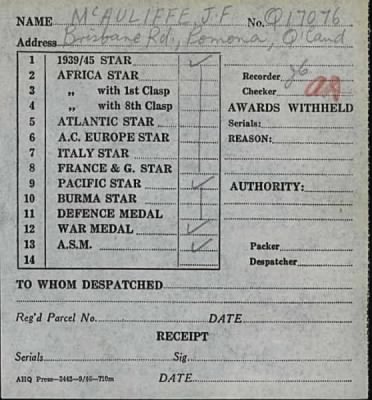 NAME McAULIFFE, J.F No. Q17076
Address Brisbane Rd., Pomona, Q'Land
1 1939/45 STAR ✓
2 AFRICA STAR
3 „ with 1st Clasp
4 „ with 8th Clasp
5 ATLANTIC STAR
6 A.C. EUROPE STAR
7 ITALY STAR
8 FRANCE & G. STAR
9 PACIFIC STAR ✓
10 BURMA STAR
11 DEFENCE MEDAL
12 WAR MEDAL ✓
13 A.S.M. ✓
14
Recorder
Checker
AWARDS WITHHELD
Serials:
REASON:
AUTHORITY:
Packer
Despatcher
TO WHOM DESPATCHED
Reg'd Parcel No. DATE
RECEIPT
Serials Sig.
AHQ Press—3443—9/46—710m DATE